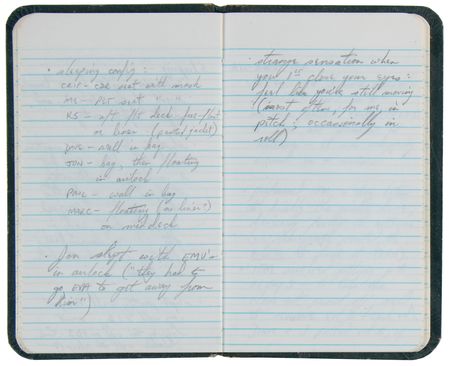 · sleeping config:
- CDR seat with mask
ME - PLT seat " "
KS - aft flt deck
or liner
- wall in bag
JON - bag, then floating
in airlock
PAUL - wall in bag
MARC - floating (no liner?)
on middeck
· Jon slept with EMU's
in airlock ("they had to
go EVA to get away from
him")
· strange sensation when
you 1st close your eyes:
feel like you're still moving
(most often, for me, in
pitch; occasionally in
roll)